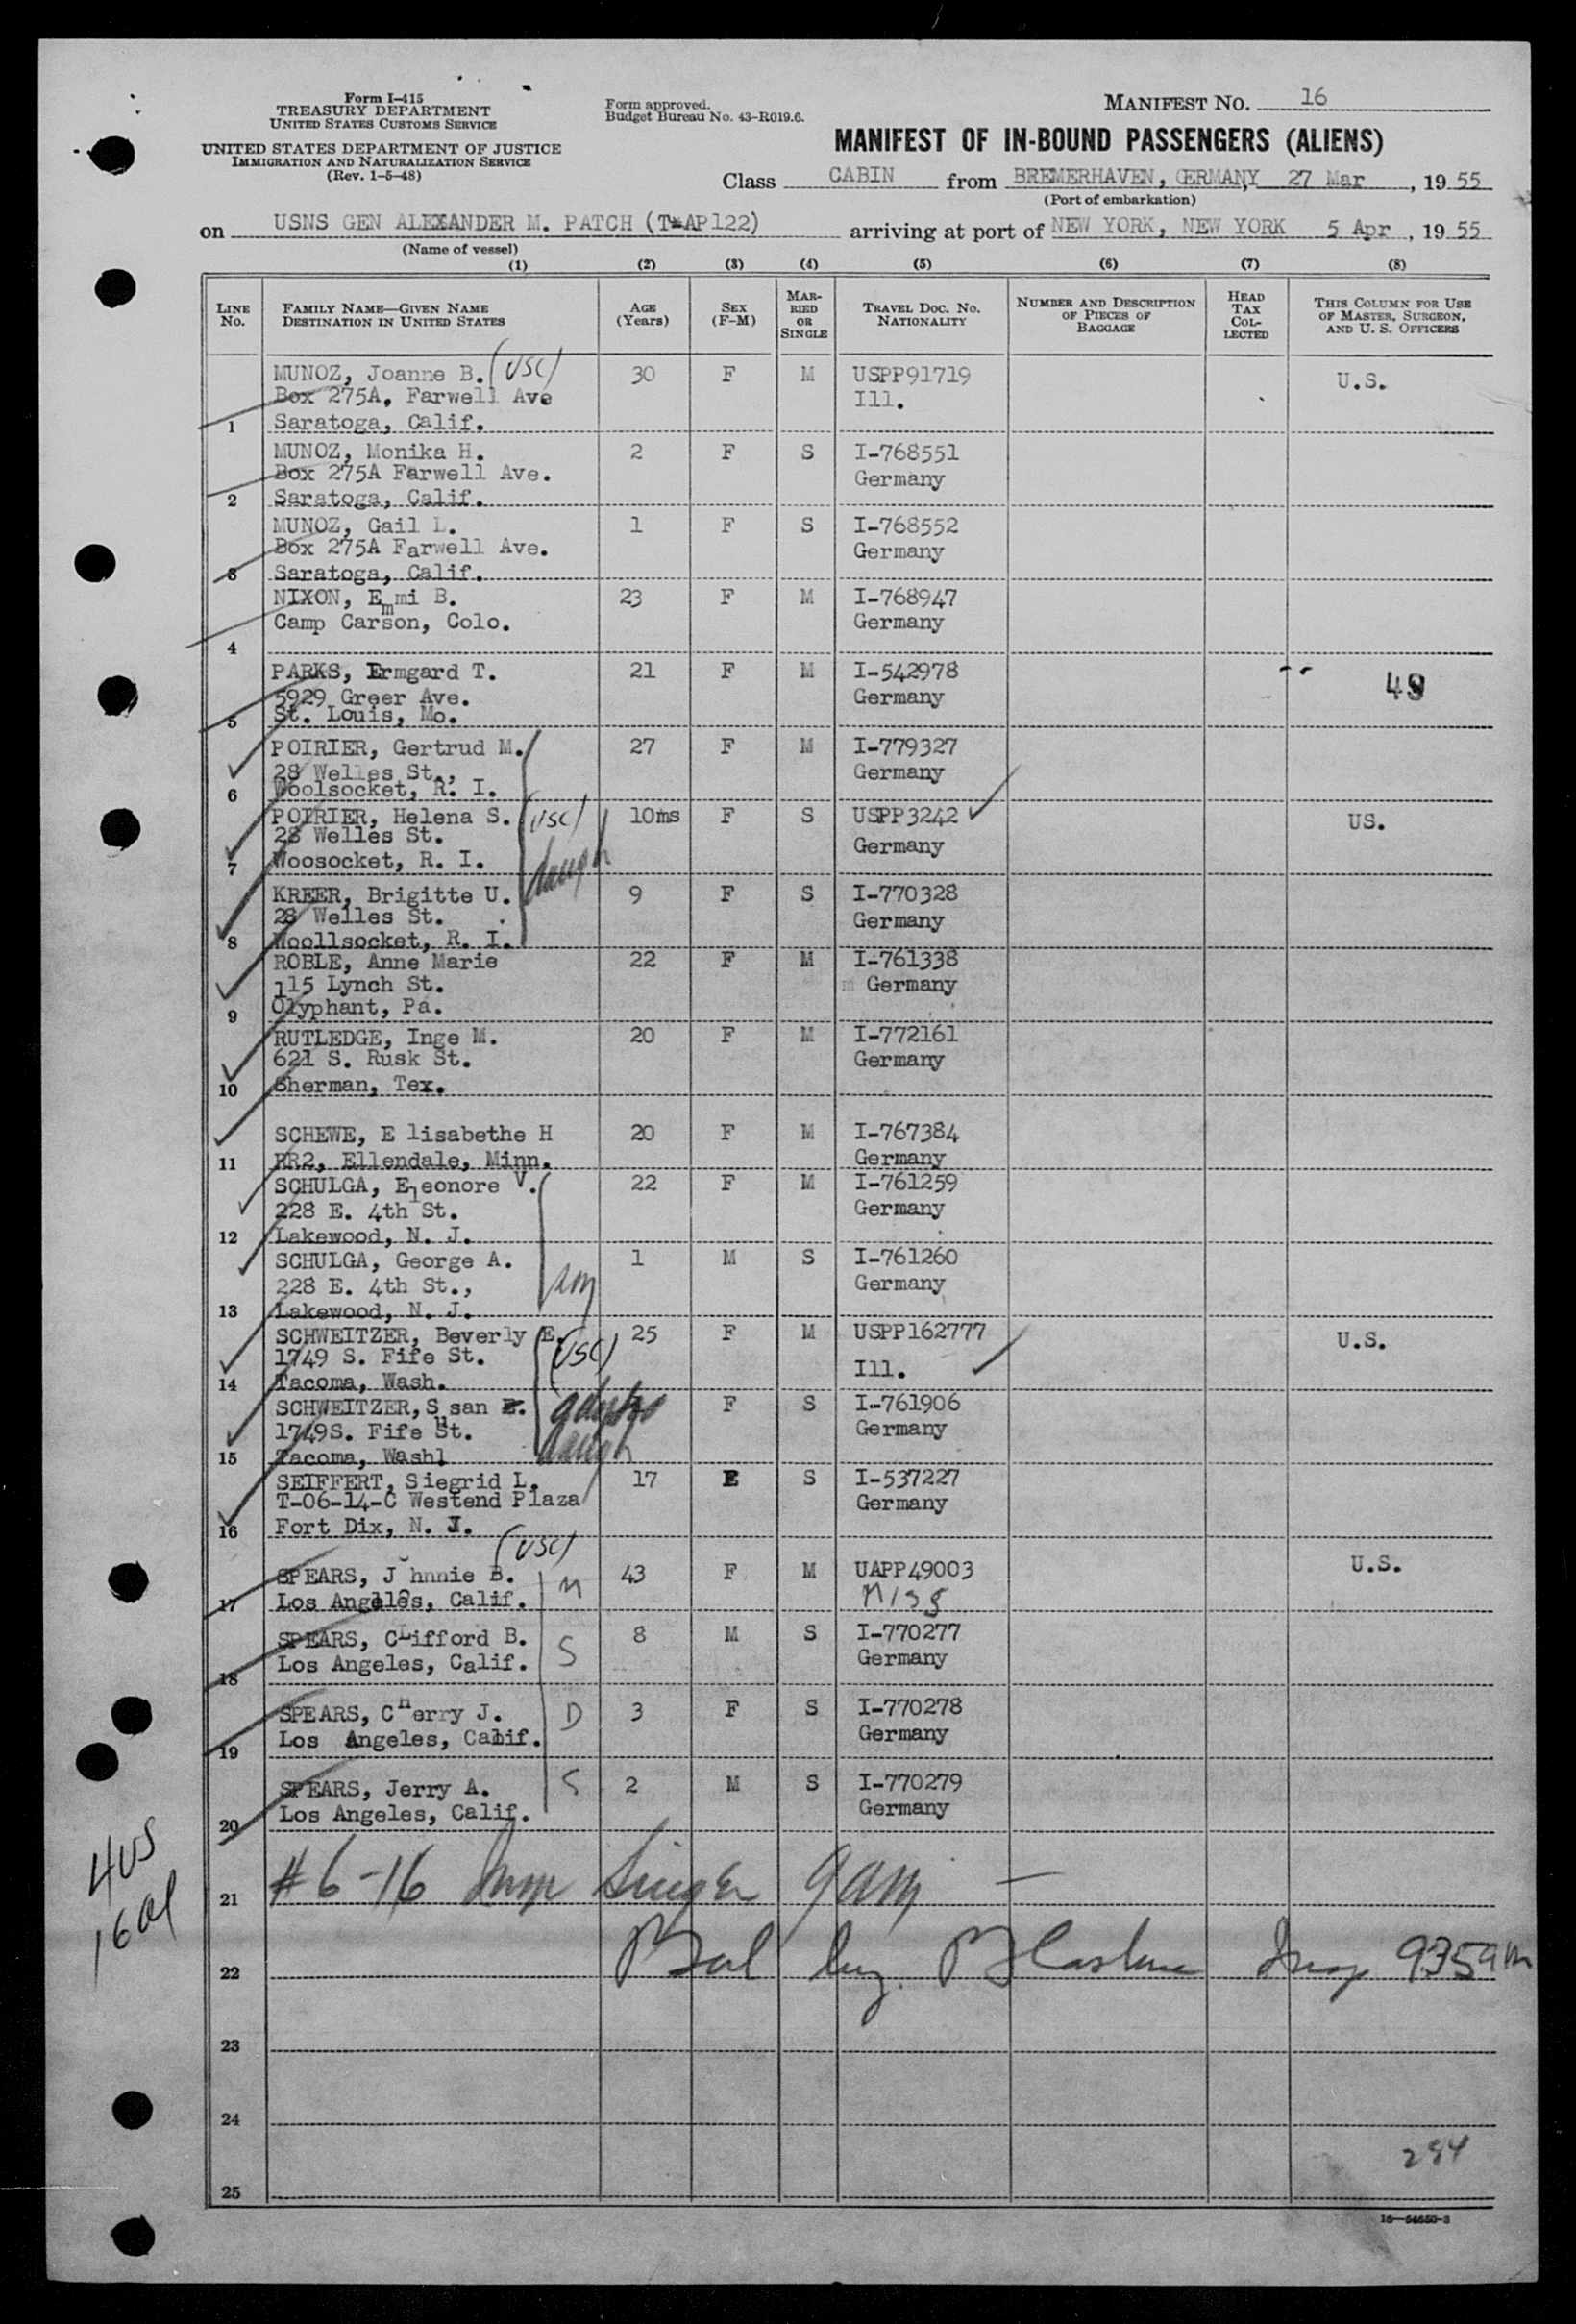 Form I-415
TREASURY DEPARTMENT
UNITED STATES CUSTOMS SERVICE
UNITED STATES DEPARTMENT OF JUSTICE
IMMIGRATION AND NATURALIZATION SERVICE
(Rev. 1-5-48)
Form approved.
Budget Bureau No. 43-R019.6.
MANIFEST NO. 16
MANIFEST OF IN-BOUND PASSENGERS (ALIENS)
Class CABIN from BREMERHAVEN, GERMANY, 27 Mar, 19 55
(Port of embarkation)
on USNS GEN ALEXANDER M. PATCH (T-AP122) arriving at port of NEW YORK, NEW YORK 5 Apr, 19 55
(Name of vessel)
(1) (2) (3) (4) (5) (6) (7) (8)
LINE NO. FAMILY NAME—GIVEN NAME DESTINATION IN UNITED STATES AGE (Years) SEX (F-M) MARRIED OR SINGLE TRAVEL DOC. NO. NATIONALITY NUMBER AND DESCRIPTION OF PIECES OF BAGGAGE HEAD TAX COLLECTED THIS COLUMN FOR USE OF MASTER, SURGEON, AND U. S. OFFICERS
MUNOZ, Joanne B. (USC) 30 F M USPP91719 U.S.
Box 275A, Farwell Ave Ill.
1 Saratoga, Calif.
MUNOZ, Monika H. 2 F S I-768551
Box 275A Farwell Ave. Germany
2 Saratoga, Calif.
MUNOZ, Gail L. 1 F S I-768552
Box 275A Farwell Ave. Germany
3 Saratoga, Calif.
NIXON, Emmi B. 23 F M I-768947
Camp Carson, Colo. Germany
4
PARKS, Ermgard T. 21 F M I-542978 49
5929 Greer Ave. Germany
5 St. Louis, Mo.
POIRIER, Gertrud M. 27 F M I-779327
28 Welles St., Germany
6 Woolsocket, R. I.
POIRIER, Helena S. (USC) 10ms F S USPP3242 US.
28 Welles St. Germany
7 Woosocket, R. I. daugh
KREER, Brigitte U. 9 F S I-770328
28 Welles St. Germany
8 Woollsocket, R. I.
ROBLE, Anne Marie 22 F M I-761338
115 Lynch St. Germany
9 Olyphant, Pa.
RUTLEDGE, Inge M. 20 F M I-772161
621 S. Rusk St. Germany
10 Sherman, Tex.
SCHEWE, E lisabethe H 20 F M I-767384
11 RR2, Ellendale, Minn. Germany
SCHULGA, Eleonore V. 22 F M I-761259
228 E. 4th St. Germany
12 Lakewood, N. J.
SCHULGA, George A. 1 M S I-761260
228 E. 4th St., Germany
13 Lakewood, N. J. son
SCHWEITZER, Beverly E. (USC) 25 F M USPP162777 U.S.
1749 S. Fife St. Ill.
14 Tacoma, Wash.
SCHWEITZER, Susan E. adopted F S I-761906
1749S. Fife St. Germany
15 Tacoma, Washl daugh
SEIFFERT, Siegrid L. 17 F S I-537227
T-06-14-C Westend Plaza Germany
16 Fort Dix, N. J.
(USC)
SPEARS, Johnnie B. M 43 F M UAPP49003 U.S.
17 Los Angeles, Calif. Miss
SPEARS, Clifford B. S 8 M S I-770277
18 Los Angeles, Calif. Germany
SPEARS, Cherry J. D 3 F S I-770278
19 Los Angeles, Calif. Germany
SPEARS, Jerry A. S 2 M S I-770279
20 Los Angeles, Calif. Germany
4 US
16 al
21 #6-16 Imm Singer 9am —
22 Bal by 935am
23
24
284
25
16—54650-3